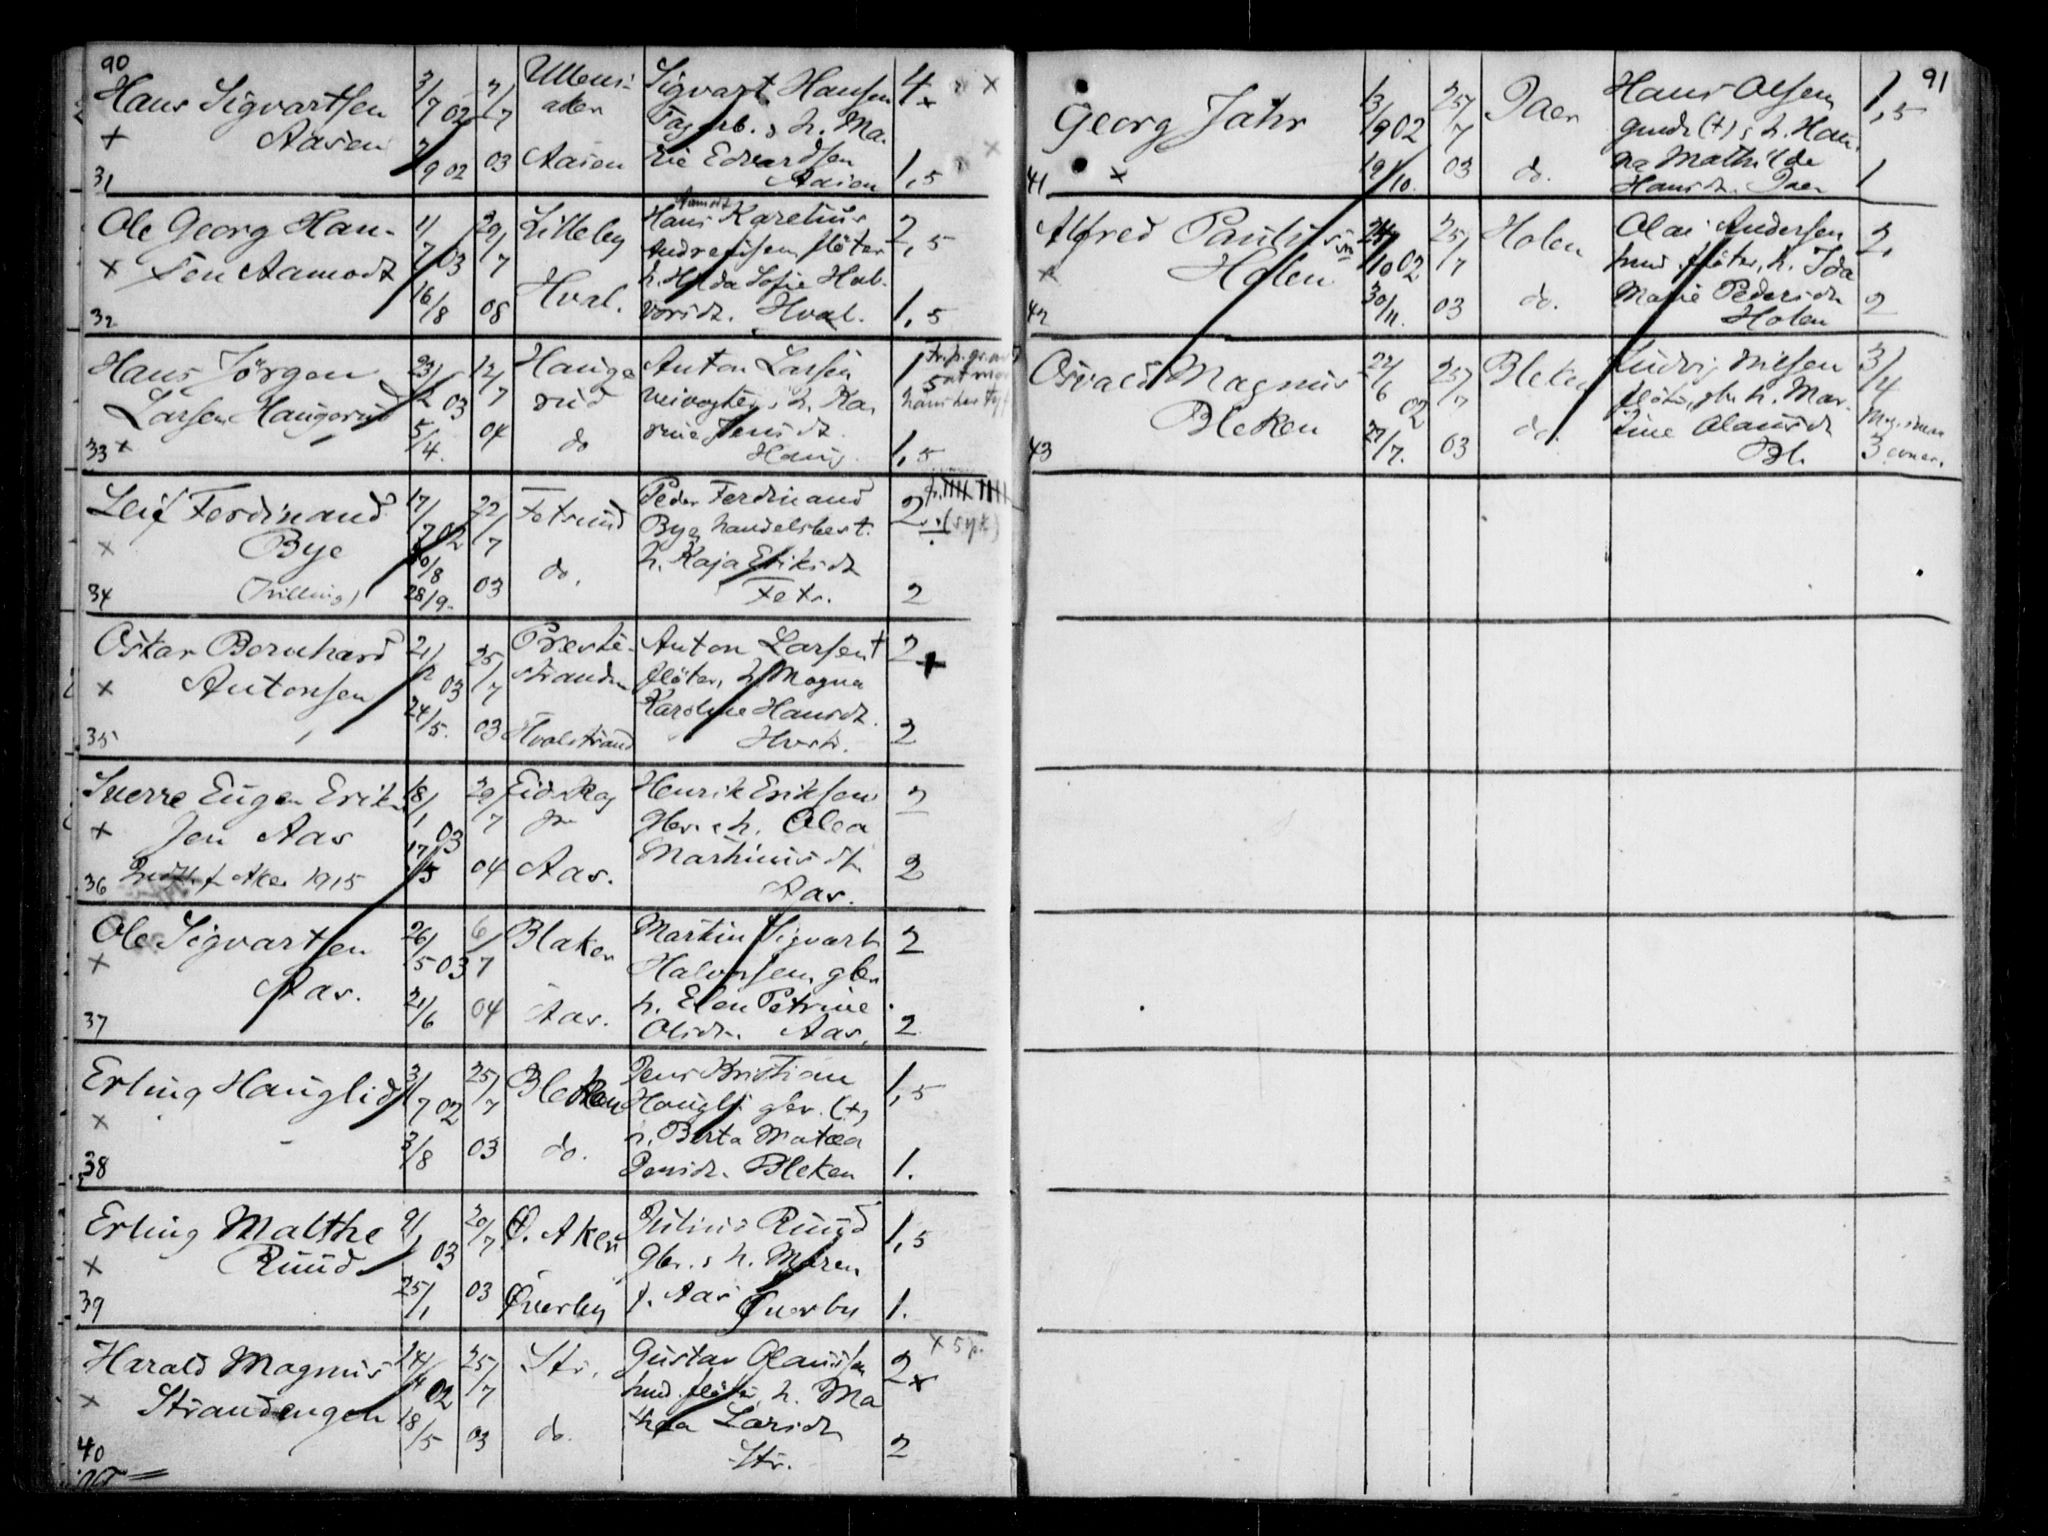 90
Hans Sigvartsen 3/7 02 7/7 Ullens- Sigvart Hansen 4
+ Aasen aker Fagarb. & h. Ma-
31 7/9 02 03 Aasen rie Edvardsen 1,5
Aasen
Ole Georg Han- 11/7 03 29/7 Lilleby Hans Karelius 2,5
Aamodt
x sen Aamodt Andreassen fløter
16/8 08 Hval. h. Hulda Sofie Hal-
32 vorsdt. Hval. 1,5
Hans Jörgen 23/2 03 12/7 Hauge- Anton Larsen 1
Larsen Haugerud rud veivogter, h. Ka-
33 x 5/4. 04 do rine Jensdt.
Haug. 1,5
Leif Ferdinand 17/7 02 22/7 Fetsund Peder Ferdinand 2
x Bye Bye, handelsbest. (syk)
do. h. Kaja Eriksdt
34 (Tvilling) 28/9. 03 Fets. 2
Oskar Bernhard 21/2 03 25/7 Preste- Anton Larsen + 2 +
x Antonsen stranden fløter, h. Magna
24/5. Karoline Hansdt.
35 03 Hvalstrand Hvstr. 2
Sverre Eugen Erik- 18/1 03 29/7 Eidskog Henrik Eriksen 2
x sen Aas gbr. & h. Olea
17/5 04 Aas. Martinusdt.
36 f Aker 1915 Aas. 2
Ole Sigvartsen 26/5 03 6/7 Blaker Martin Sigvart 2
x Halvorsen, gbr
Aas. 21/6 04 Aas. h. Elen Petrine
37 Olsdt. Aas. 2
Erling Hauglid 3/7 02 25/7 Bleken Jens Kristian 1,5
x Haugli gbr. (+)
3/8 03 do. h. Berta Matea
38 Jensdt. Bleken 1.
Erling Malthe 9/1 03 20/7 Ø. Aker Julius Ruud 1,5
x Ruud gbr. & h. Maren
39 25/1 03 Øverby f. Aas Øverby 1.
Harald Magnus 14/4 02 25/7 Str. Gustav Olaussen 2x x 5
x Strandengen fløter, h. Ma
18/5 03 do. thea Larsdt
40 Str. 2
91
Georg Jahr 13/9 02 25/7 Jaer Hans Olsen 1,5
gmdr (+) & h. Han-
x 19/10. 03 do. na Mathilde
41 Hansdt. Jaer 1
Alfred Paulus 24/10 02 25/7 Holen Olai Andersen 2.
x Holen fløter, h. Ida
30/11. 03 do. Marie Pedersdt
42 Holen 2
Osvald Magnus 22/6 02 25/7 Bleken Ludvig Nilsen 3/4
Bleken fløter, gbr h. Mar-
27/7. 03 do. tine Olausdt
43 Bl. 3 evner.